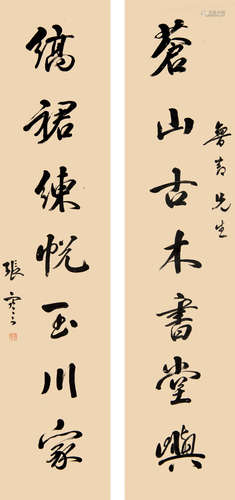 魯 先生
蒼山古木書堂嶼
縞裙練帨玉川家
張